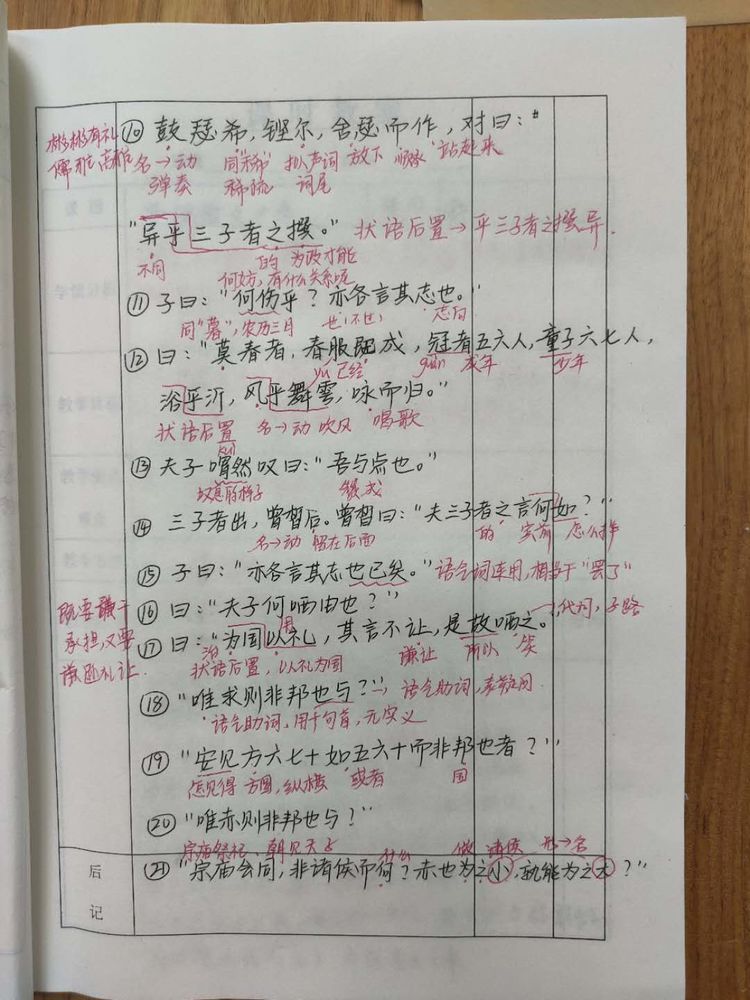 彬彬有礼
儒雅高雅
⑩ 鼓瑟希，铿尔，舍瑟而作，对曰："
名→动 同"稀" 拟声词 放下 站起来
弹奏 稀疏 词尾
"异乎三子者之撰。" 状语后置→乎三子者之撰异.
不同 的 为政才能
何妨，有什么关系呢
⑪ 子曰："何伤乎？亦各言其志也。"
同"暮"，农历三月 志向
⑫ 曰："莫春者，春服既成，冠者五六人，童子六七人，
已经 guàn 成年 少年
浴乎沂，风乎舞雩，咏而归。"
yú
状语后置 名→动 吹风 唱歌
kuì
⑬ 夫子喟然叹曰："吾与点也。"
叹息的样子 赞成
⑭ 三子者出，曾皙后。曾皙曰："夫三子者之言何如？"
名→动 留在后面 的 宾前 怎么样
⑮ 子曰："亦各言其志也已矣。" 语气词连用，相当于"罢了"
⑯ 曰："夫子何哂由也？"
既要敢于
承担，又要
谦逊礼让.
用 →代词，子路
⑰ 曰："为国以礼，其言不让，是故哂之。
治
状语后置，以礼为国 谦让 所以 笑
⑱ "唯求则非邦也与？" → 语气助词，表疑问.
语气助词，用于句首，无实义
⑲ "安见方六七十如五六十而非邦也者？"
怎见得 方圆，纵横 或者 国
⑳ "唯赤则非邦也与？"
宗庙祭祀、朝见天子 什么 做 诸侯 形→名
后记
㉑ "宗庙会同，非诸侯而何？赤也为之小，孰能为之大？"